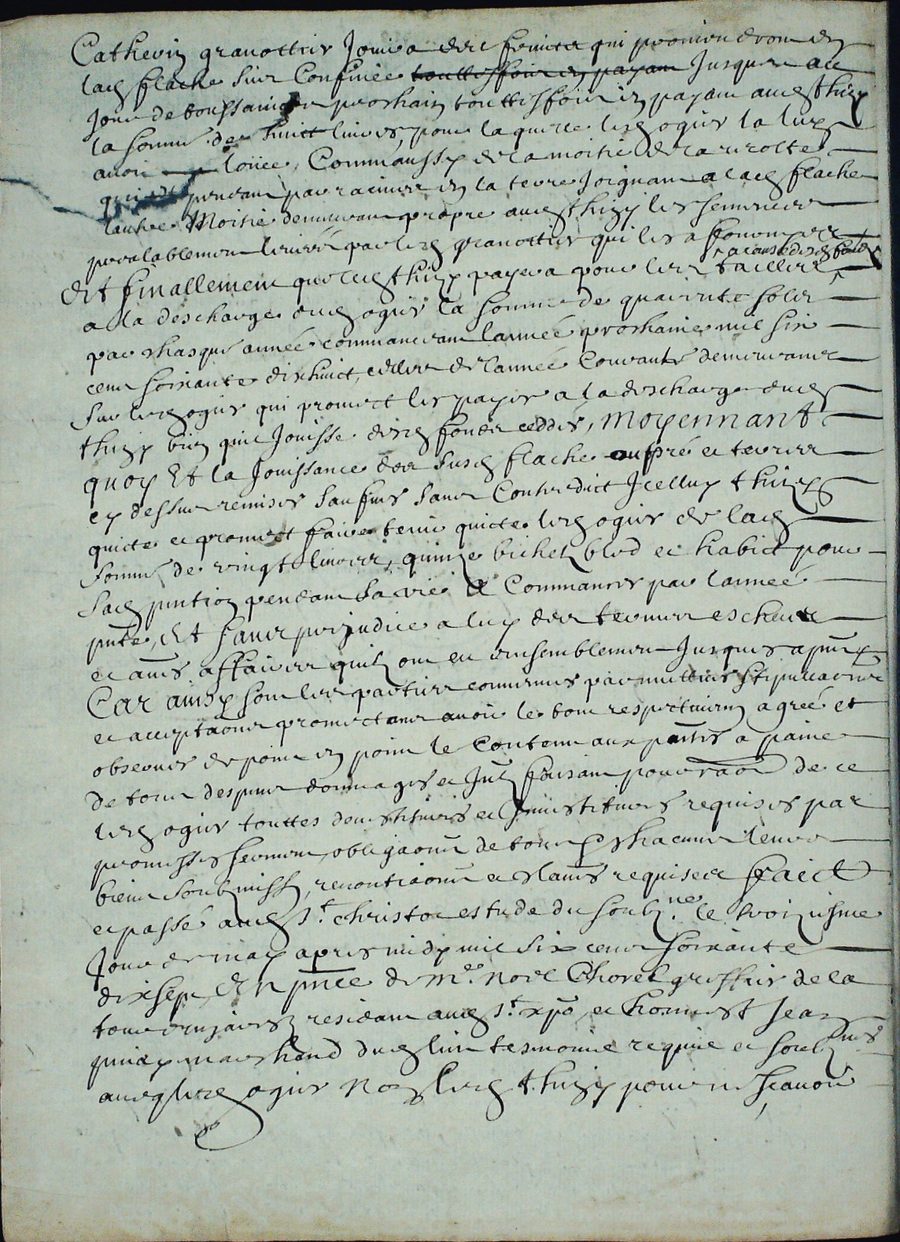 Catherin granottier Jouira des fruictz qui proviendront en
lad flache sus Confinée touttesfois en payant Jusques au
Jour de toussainctz prochain touttesfois en payant aud thizy
la somme de huict livres pour laquelle led ogier la luy
avoit louée, Comm' aussy de la moitié de la recolte
qui pendant par racines en la terre Joignant a lad flache
lautre Moitié demeurant propre aud thizy les semences
prealablement levées par led granottier qui les a fournyes
a cause desd fondz
Et finallement que led thizy payera pour les tailles
a la descharge dud ogier la somme de quarente solz
par chasque année commancant lannée prochaine mil six
cent soixante dixhuict, celles de lannée Courante demeurant
sur led ogier qui promect les payer a la descharge dud
thizy bien quil Jouisse desd fondz ceddés, Moyennant
quoy Et la Jouissance des susd flache pré et terres
cy dessus remises sauf sans Contredict Icelluy thizy
quicte et promect faire tenir quicte led ogier de lad
somme de vingt livres, quinze bichetz bled et habict pour
sad pention pendant sa vie A Commancer par lannée
pnte, Et sans prejudice a luy des termes escheus
et aues affaires quilz ont eu ensemblement Jusques a pnt
Car ainsy sont les parties convenues par mutties stipulaons
et acceptaons promectans avoir le tout respectivement agreé et
observer de point en point le Contenu aux pntes a paine
de tous despens dommages et Intz faisant pour raon de ce
led ogier touttes devestitures et Investitures requises par
promesses serment, obligaons de tous et chacuns leurs
biens soubzmissn, renontiaons et claues requises faict
et passé aud St christo estude du soubz.ne le troiziesme
Jour de may apres midy mil six cent soixante
dixsept, En pnce de Me Noel Chorel greffier de la
tour en jarez residant aud St xpo, et honnest Jean
marchand dud lieu tesmoins requis et soubznés
avec led ogier Non led thizy pour ne scavoir